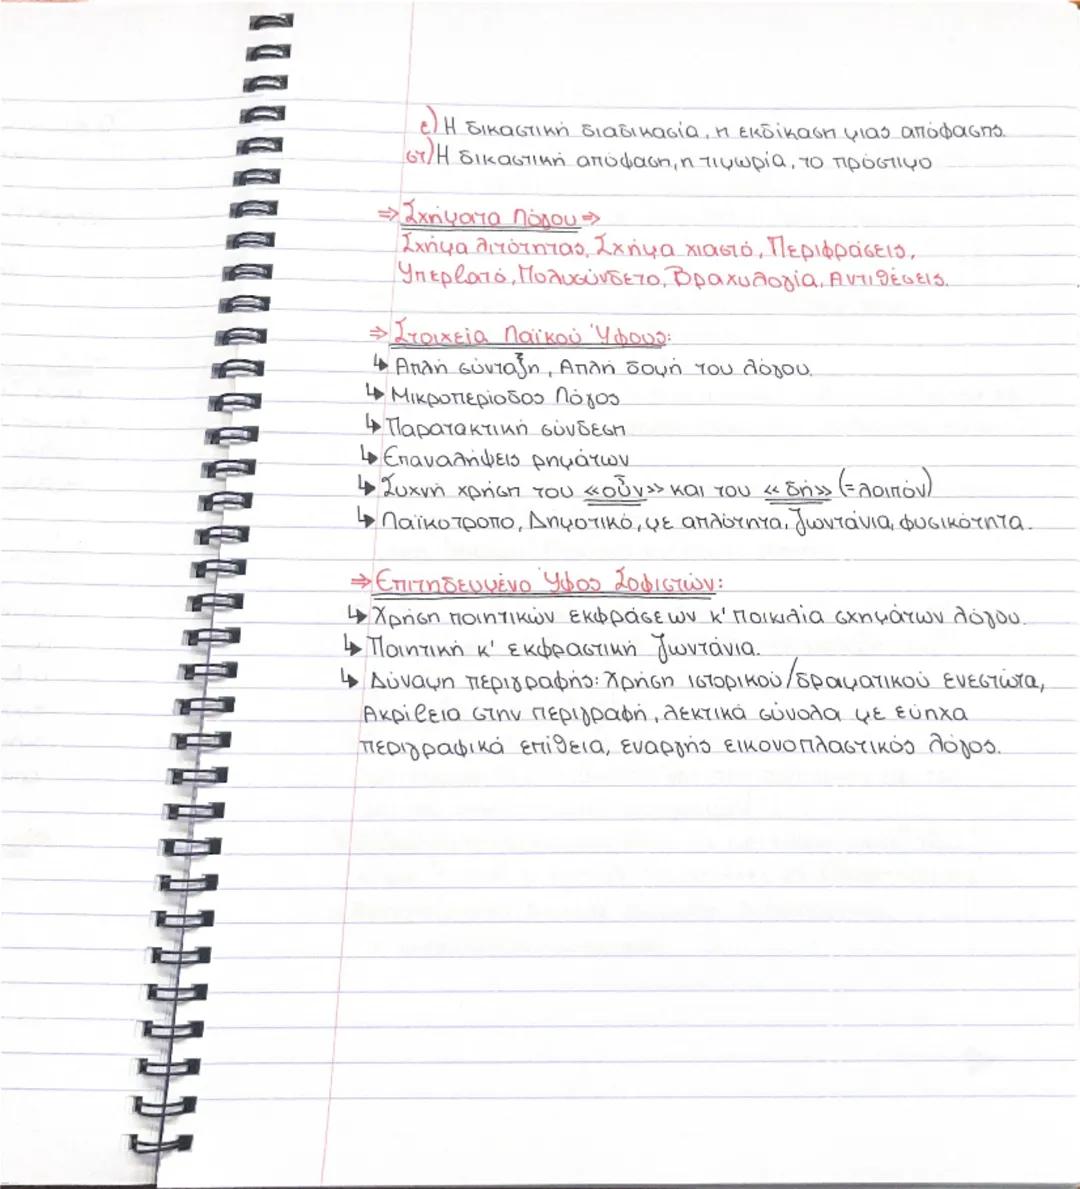 ε) Η δικαστική διαδικασία, η εκδίκαση μιας απόφασης.
στ) Η δικαστική απόφαση, η τιμωρία, το πρόστιμο
⇒ Σχήματα Λόγου ⇒
Σχήμα λιτότητας, Σχήμα χιαστό, Περιφράσεις,
Υπερβατό, Πολυσύνδετο, Βραχυλογία, Αντιθέσεις.
⇒ Στοιχεία Λαϊκού Ύφους:
↳ Απλή σύνταξη, Απλή δομή του λόγου.
↳ Μικροπερίοδος Λόγος
↳ Παρατακτική σύνδεση
↳ Επαναλήψεις ρημάτων
↳ Συχνή χρήση του «οὖν» και του «δή» (=λοιπόν)
↳ Λαϊκότροπο, Δημοτικό, με απλότητα, ζωντάνια, φυσικότητα.
⇒ Επιτηδευμένο Ύφος Σοφιστών:
↳ Χρήση ποιητικών εκφράσεων κ' ποικιλία σχημάτων λόγου.
↳ Ποιητική κ' εκφραστική ζωντάνια.
↳ Δύναμη περιγραφής: Χρήση ιστορικού/δραματικού ενεστώτα,
Ακρίβεια στην περιγραφή, λεκτικά σύνολα με εύηχα
περιγραφικά επίθεια, εναργής εικονοπλαστικός λόγος.